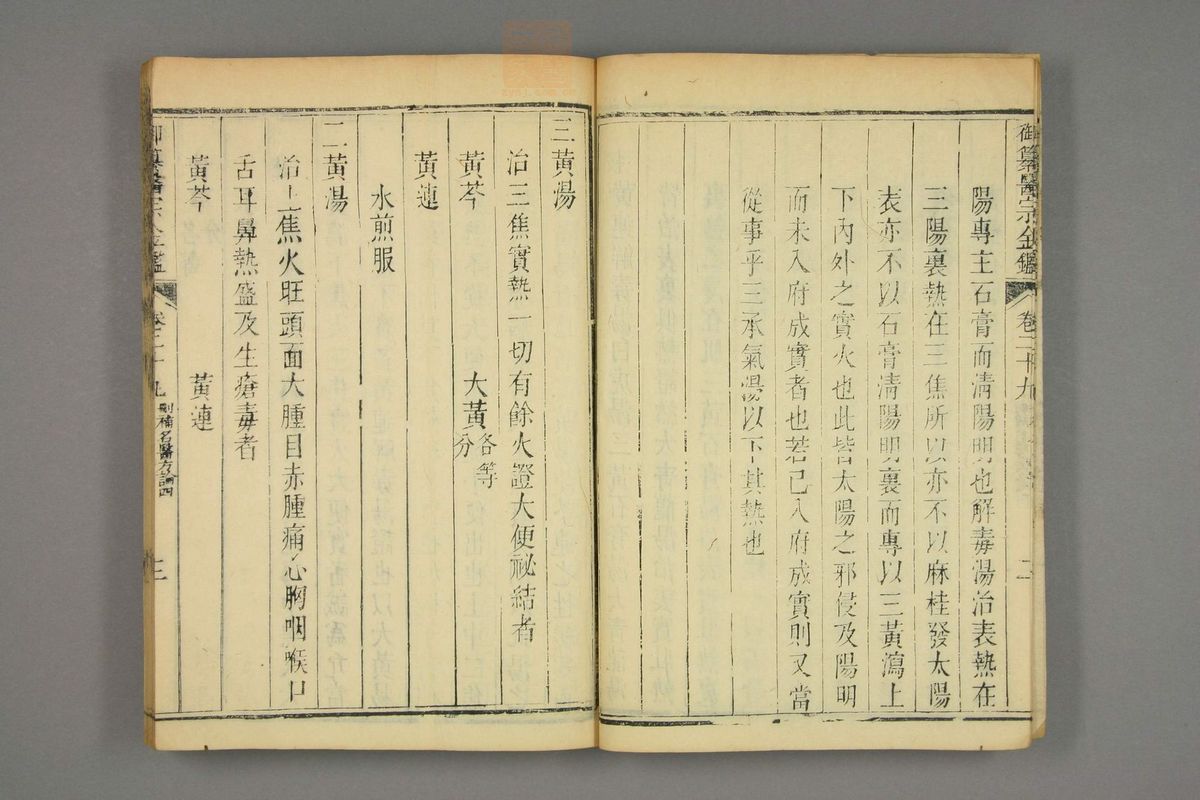 御纂醫宗金鑑 卷二十九 二
陽專主石膏而清陽明也解毒湯治表熱在
三陽裏熱在三焦所以亦不以麻桂發太陽
表亦不以石膏清陽明裏而專以三黃瀉上
下內外之實火也此皆太陽之邪侵及陽明
而未入府成實者也若已入府成實則又當
從事乎三承氣湯以下其熱也
三黃湯
治三焦實熱一切有餘火證大便祕結者
黃芩 大黃各等分
黃連
水煎服
二黃湯
治上焦火旺頭面大腫目赤腫痛心胸咽喉口
舌耳鼻熱盛及生瘡毒者
黃芩 黃連
御纂醫宗金鑑 卷二十九 刪補名醫方論四 三